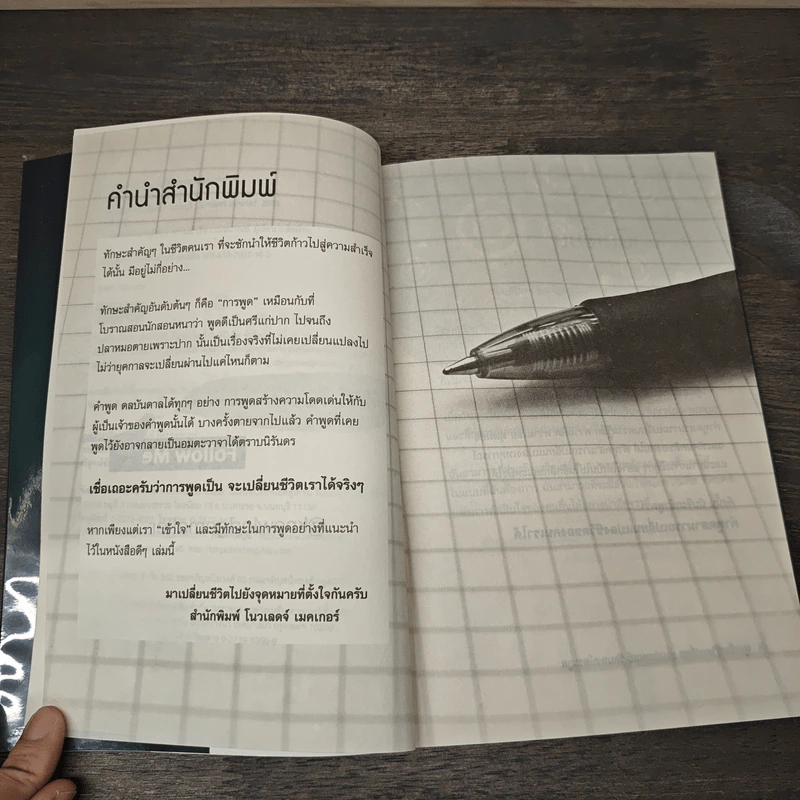 คำนำสำนักพิมพ์
ทักษะสำคัญๆ ในชีวิตคนเรา ที่จะชักนำให้ชีวิตก้าวไปสู่ความสำเร็จ
ได้นั้น มีอยู่ไม่กี่อย่าง...
ทักษะสำคัญอันดับต้นๆ ก็คือ “การพูด” เหมือนกับที่
โบราณสอนนักสอนหนาว่า พูดดีเป็นศรีแก่ปาก ไปจนถึง
ปลาหมอตายเพราะปาก นั้นเป็นเรื่องจริงที่ไม่เคยเปลี่ยนแปลงไป
ไม่ว่ายุคกาลจะเปลี่ยนผ่านไปแค่ไหนก็ตาม
คำพูด ดลบันดาลได้ทุกๆ อย่าง การพูดสร้างความโดดเด่นให้กับ
ผู้เป็นเจ้าของคำพูดนั้นได้ บางครั้งตายจากไปแล้ว คำพูดที่เคย
พูดไว้ยังอาจกลายเป็นอมตะวาจาได้ตราบนิรันดร
เชื่อเถอะครับว่าการพูดเป็น จะเปลี่ยนชีวิตเราได้จริงๆ
หากเพียงแต่เรา “เข้าใจ” และมีทักษะในการพูดอย่างที่แนะนำ
ไว้ในหนังสือดีๆ เล่มนี้
มาเปลี่ยนชีวิตไปยังจุดหมายที่ตั้งใจกันครับ
สำนักพิมพ์ โนวเลดจ์ เมคเกอร์